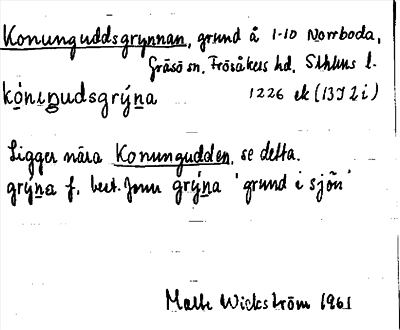 Konunguddsgrynnan, grund å 1-10 Norrboda,
Gräsö sn. Frösåkers hd. Sthlms l.
kónuŋudsgrýna 1226 ek (13I2i)
Ligger nära Konungudden, se detta.
grýna f. best. form grýna 'grund i sjön'
Mats Wickström 1961